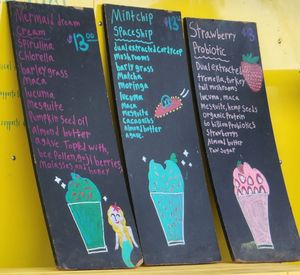 Mermaid dream
Cream
$13.00
Spirulina
Chlorella
barley grass
maca
Lucuma
mesquite
Pumpkin Seed oil
almond butter
agave Topped with
bee Pollen, goji berries,
molasses and honey
Mintchip $13
Spaceship
dual extracted cordycep
mushrooms
barly grass
Matcha
moringa
lucuma
maca
mesquite
Cacao nibs
Almond butter
agave
Strawberry $13
Probiotic
Dual extracted
tremella, turkey
tail mushrooms
lucuma, maca
mesquite, hemp seeds
organic protein
60 billion probiotics
strawberries
Almond butter
raw sugar